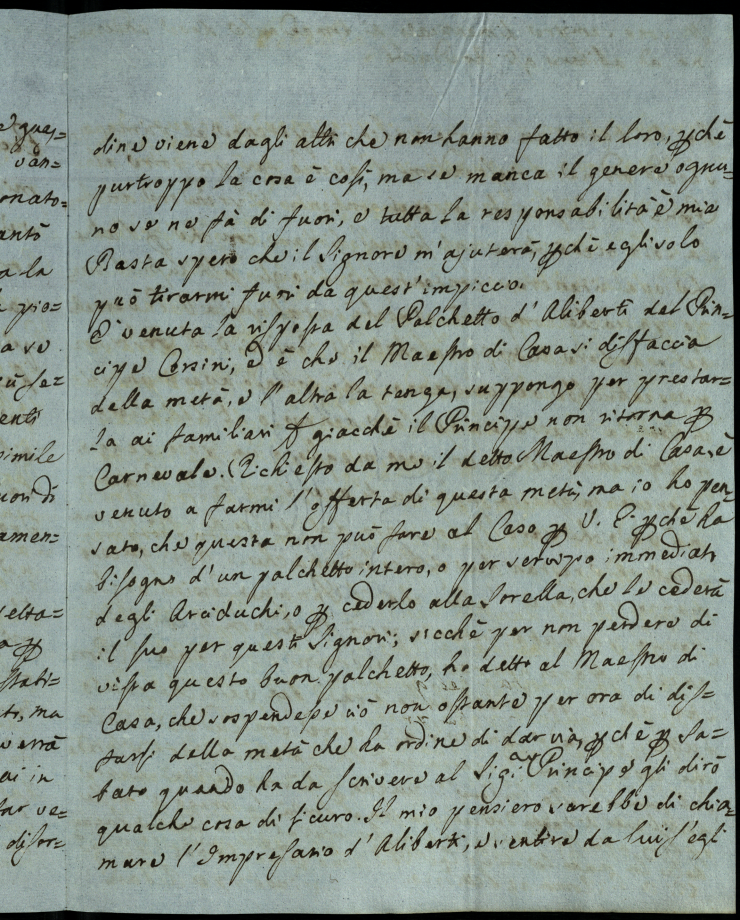 e ques=
van=
ornato=
antò
a la
pio=
a se
più se=
enti
simile
uori di
amen=
velta=
a ꝑ
stati=
to, ma
verrà
ai in
far ve=
disor=
dine viene dagli altri che non hanno fatto il loro, ꝑchè
purtroppo la cosa è così, ma se manca il genere ognu=
no se ne fà di fuori, e tutta la responsabilità è mia
Basta spero che il Signore m'ajuterà, ꝑchè egli solo
può tirarmi fuori da quest'impiccio.
È venuta la risposta del Palchetto d'Aliberti del Prin=
cipe Corsini, ed è che il Maestro di Casa si disfaccia
della metà, e l'altra la tenga, suppongo per prestar=
la ai familiari giacchè il Principe non ritorna ꝑ
Carnevale. Richiesto da me il detto Maestro di Casa, è
venuto a farmi l'offerta di questa metà, ma io ho pen=
sato, che questa non può fare al Caso ꝑ V. E. ꝑchè ha
bisogno d'un palchetto intero, o per servizio immediato
degli Arciduchi, o ꝑ cederlo alla Sorella, che le cederà
il suo per questi Signori; sicchè per non perdere di
vista questo buon palchetto, ho detto al Maestro di
Casa, che sospendesse ciò non ostante per ora di dis=
farsi della metà che ha ordine di dar via, ꝑchè ꝑ Sa=
bato quando ha da scrivere al Sig.r Principe gli dirò
qualche cosa di sicuro. Il mio pensiero sarebbe di chia=
mare l'Impresario d'Aliberti, e sentire da lui, s'egli